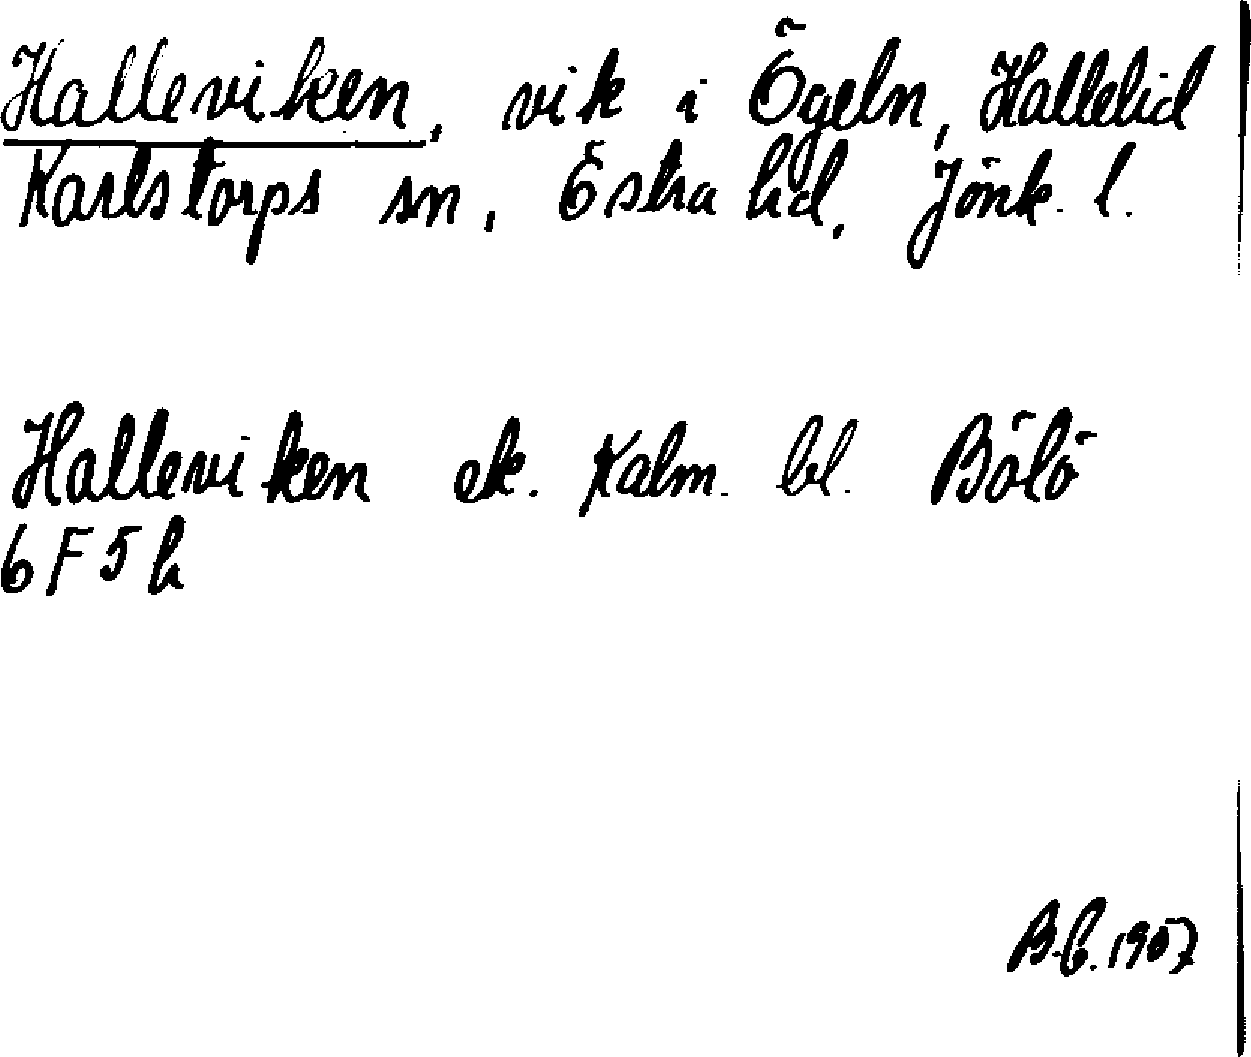 Halleviken, vik i Ögeln, Hallelid
Karlstorps sn, Östra hd, Jönk. l.
Halleviken ek. Kalm. bl. Bölö
6F5h
B.C. 1907